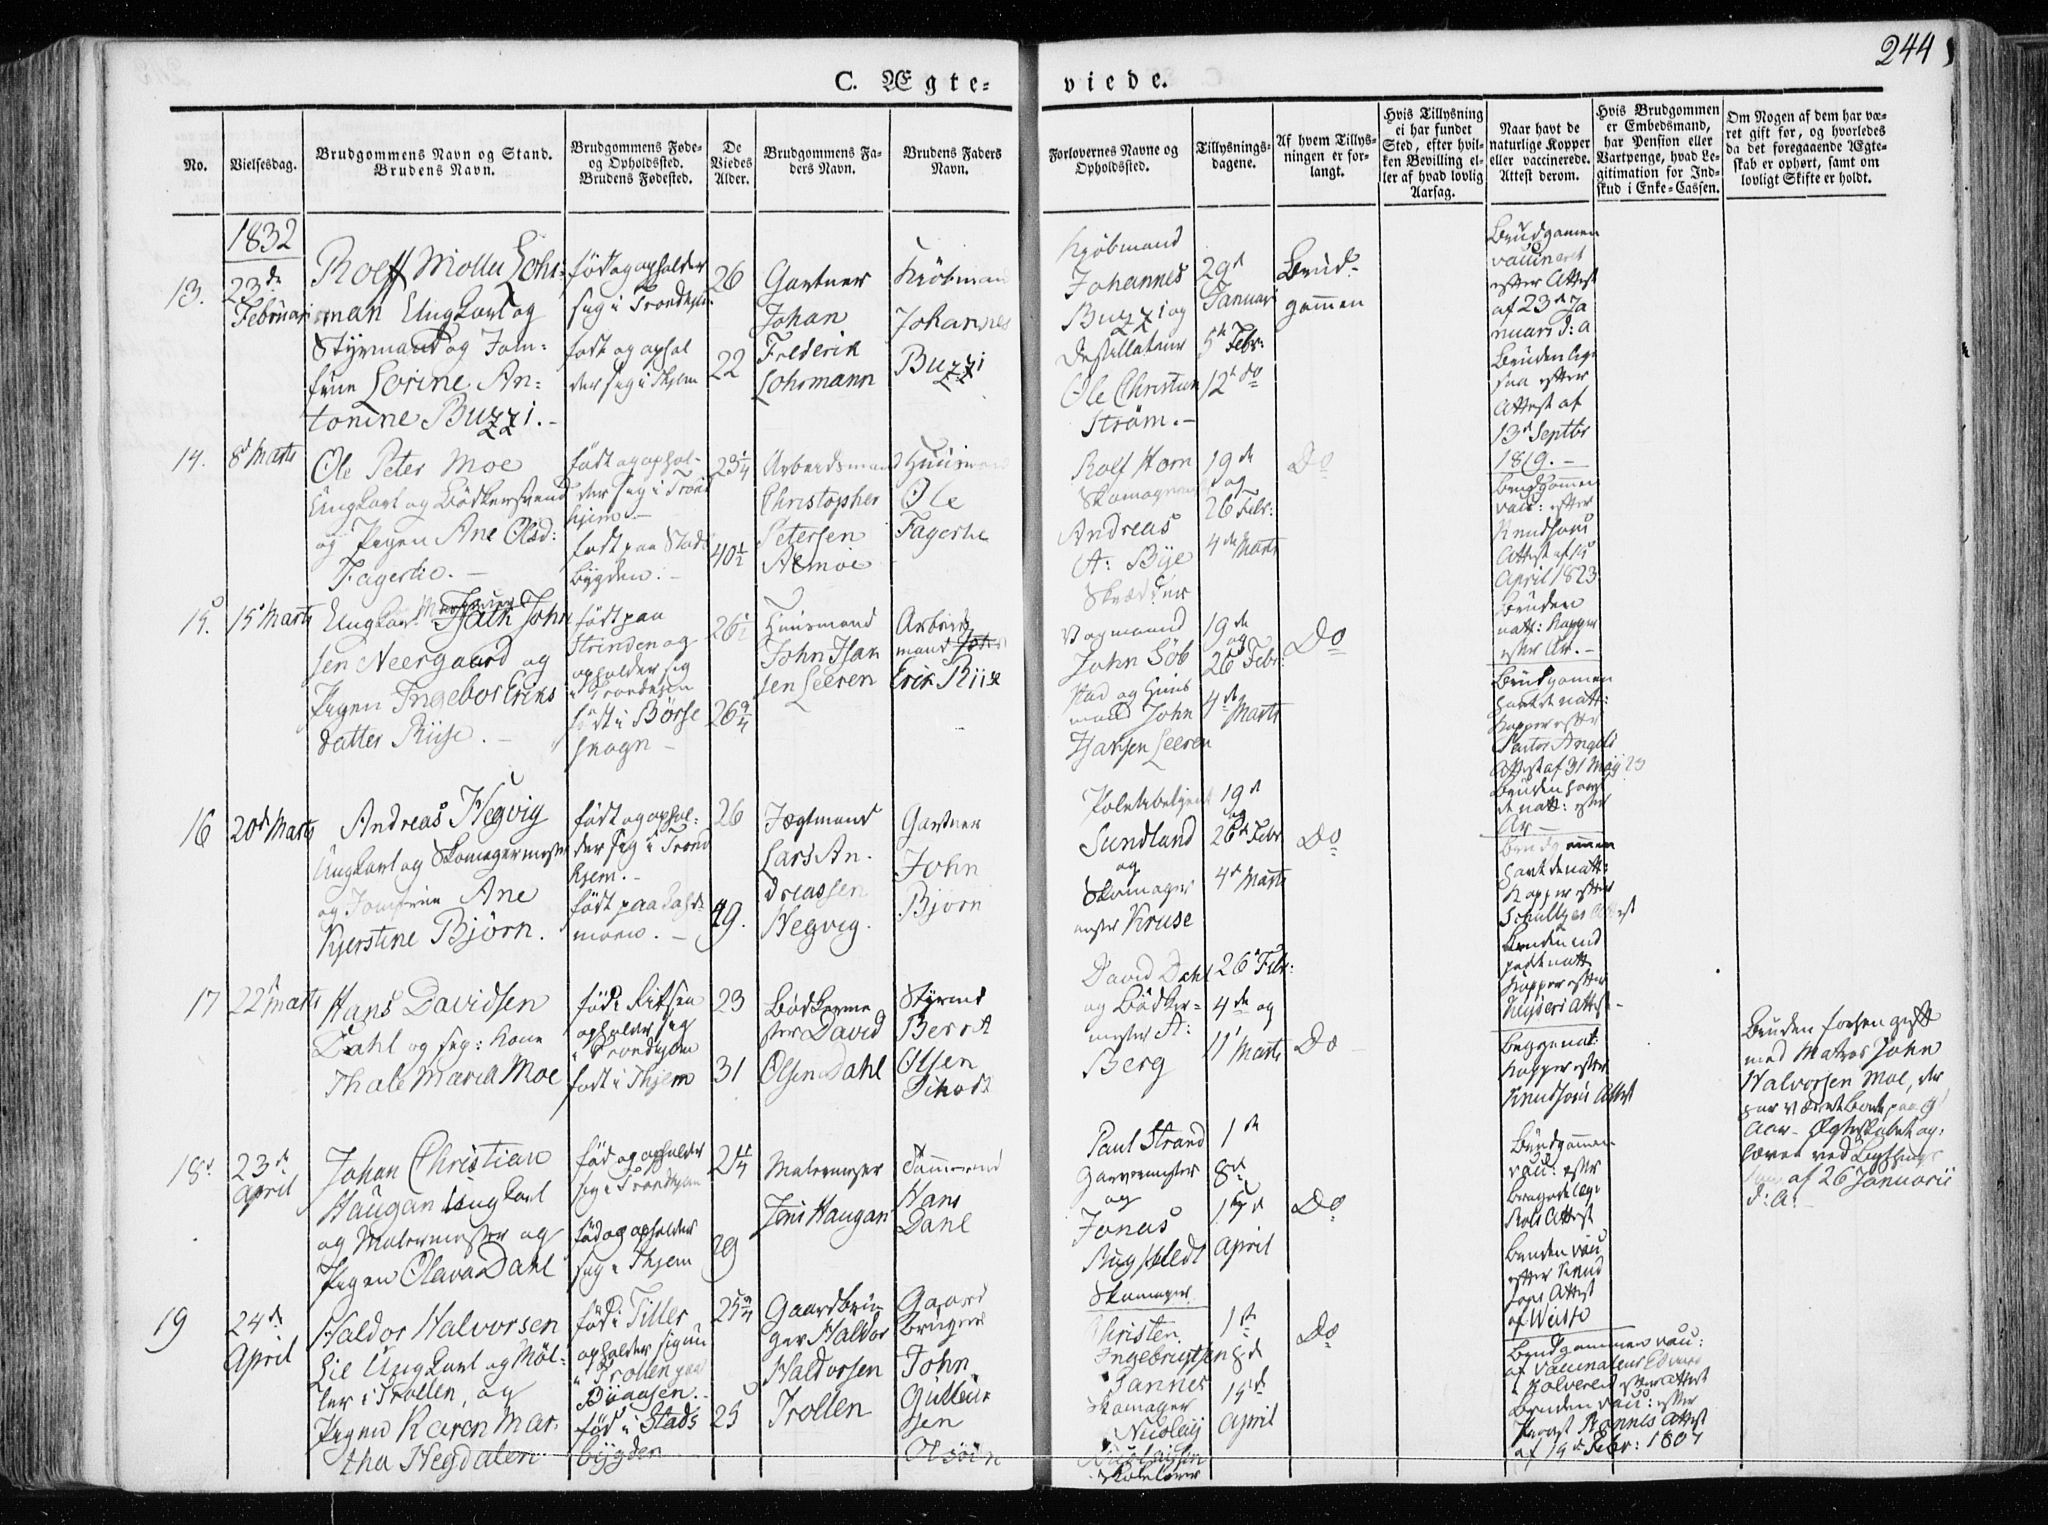 244
C. Ægte-
viede.
No.
Vielsesdag.
Brudgommens Navn og Stand.
Brudens Navn.
Brudgommens Føde-
og Opholdssted.
Brudens Fødested.
De
Viedes
Alder.
Brudgommens Fa-
ders Navn.
Brudens Faders
Navn.
Forlovernes Navne og
Opholdssted.
Tillysnings-
dagene.
Af hvem Tillys-
ningen er for-
langt.
Hvis Tillysning
ei har fundet
Sted, efter hvil-
ken Bevilling el-
ler af hvad lovlig
Aarsag.
Naar havt de
naturlige Kopper
eller vaccinerede.
Attest derom.
Hvis Brudgommen
er Embedsmand,
har Pension eller
Vartpenge, hvad Le-
gitimation for Ind-
skud i Enke-Cassen.
Om Nogen af dem har væ-
ret gift før, og hvorledes
da det foregaaende Ægte-
skab er ophørt, samt om
lovligt Skifte er holdt.
1832
13.
23de
Februar
Rolff Møller Lohr-
man Ungkarl og
Styrmand og Jom-
frue Lorine An-
tonine Buzzi.
født og opholder
sig i Trondhjem
født og ophol
der sig i Thjem
26
22
Gartner
Johan
Frederik
Lohrmann
Kiøbmand
Johannes
Buzzi
Kjøbmand
Johannes
Buzzi og
Destillateur
Ole Christian
Strøm.
29d
Januari
5te Febr:
12t do
Brud-
gommen
Brudgomen
vaccineret
efter Attest
af 23de Ja
nuari d: a
Bruden lige
saa efter
Attest af
13d Septbr
1819.
14.
8d Marts
Ole Peter Moe
Ungkarl og Bødkersvend
og Pigen Ane Olsd:
Fagerlie.
født og ophol-
der sig i Trond
hjem.
født paa Stads
bygden.
23 1/4
40 1/2
Arbeidsmand
Christopher
Petersen
Huusmand
Ole
Fagerlie
Rolf Horn
Skomager
Andreas
A: Bye
Skrædder
19de
og
26 Febr:
4de Marts
Do
Brudgommen
vac: efter
Knudsons
Attest af
April 1823
Bruden
natt: Kopper
efter Ar.
15.
15d Marts
Ungkarl Falk John
sen Neergaard og
Pigen Ingebor Eriks
datter Riise.
født paa
Strinden og
opholder sig
i Trondhjem
født i Børse
skogn
26 1/2
26 3/4
Huusmand
John
sen Leeren
Arbeids
mand
Erik Riise
Vogmand
John Søb
stad og Huus
mand John
Leeren
19de
og
26d Febr:
4de Marts
Do
Brudgomen
havt de natt:
Kopper efter
Pastor Angels
Attest af 31 Maj 23
Bruden havt
de natt: efter
Ar
16
20d Marts
Andreas Hegvig
Ungkarl og Skomagermester
og Jomfrue Ane
Kjerstine Bjørn.
født og ophol-
der sig i Trond
hjem.
født paa
moen.
26
49.
Jægtmand
Lars An-
dreassen
Hegvig.
Gartner
John
Bjørn
Politiebetjent
Sundland
og
Skomager
mester Kruse
19d
og
26d Febr
4de Marts
Do
Brudgommen
havt de natt:
Kopper efter
Attest
Bruden
havt de natt
Kopper efter
Attest
17
22d Marts
Hans Davidsen
Dahl og sep: Kone
Thale Maria Moe
fød i
opholder sig
i Trondhjem
født i Thjem
23
31
Bødkerme
ster David
Olsen Dahl
Styrmd
Berrt
Olsen
David Dahl
og Bødker-
mester A:
Berg
26d Febr:
4de og
11t Marts
Do
Begge nat:
Kopper efter
Knudsons Attest
Bruden forhen gift
med Matros John
Halvorsen Moe, der
har været borte paa 9d
Aar - Ægteskabet op-
hævet ved
af 26 Januarii
d: A:
18d
23de
April
Johan Christian
Haugan Ungkarl
og Malermester og
Pigen Olava Dahl
fød og opholder
sig i Trondhjem
fød og opholder
sig i Thjem
29
Malermester
Jens Haugan
Tømmermand
Hans
Dahl
Paul Strand
Garvermester
og
Jonas
Skomager
1te
8de
April
Do
Brudgommen
vac: efter
Attest
Bruden vac
efter Knud
sons Attest
19
24de
April
Haldor Halvorsen
Lie Ungkarl og Møl-
ler i Trollen, og
Pigen Karen Mar-
tha Hegdalen
fød i Tiller
opholder sig nu
i Trollen paa
fød i Stads
bygden
25 3/4
25
Gaardbru-
ger Haldor
Haldorsen
Trollen
Gaard
bruger
John
Christen
Ingebrigtsen
Skomager
Nicolaj
Nicolajsen
1te
8d
15de
April
Do
Brudgommen vac:
af
efter Attest
Bruden vac: efter
Provst Attest
af 19de Febr: 1807